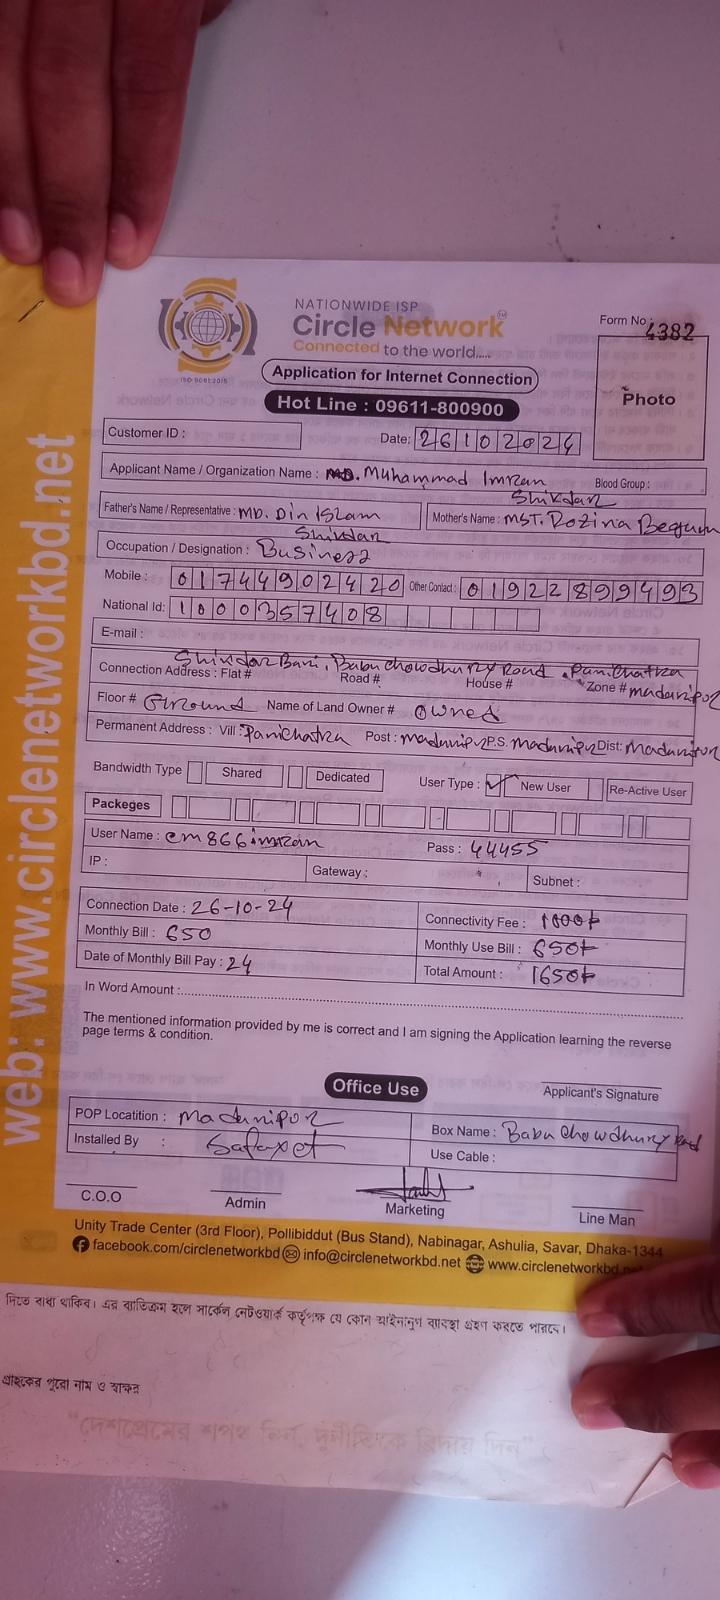 NATIONWIDE ISP
Circle Network
Connected to the world.....
ISO 9001:2015
Form No : 4382
Application for Internet Connection
Hot Line : 09611-800900
Photo
Customer ID :
Date: 26102024
Applicant Name / Organization Name : MD. Muhammad Imran Shikdar
Blood Group :
Father's Name / Representative : MD. Din Islam Shikdar
Mother's Name : MST. Rozina Begum
Occupation / Designation : Business
Mobile : 01744902420 Other Contact : 01922899493
National Id: 1000357408
E-mail :
Shikdar Bari, Babu Chowdhury Road, Panichatra
Connection Address : Flat # Road # House # Zone # madaripur
Floor # Ground Name of Land Owner # Owned
Permanent Address : Vill : Panichatra Post : madaripur P.S. madaripur Dist: Madaripur
Bandwidth Type Shared Dedicated User Type : New User Re-Active User
Packeges
User Name : cm866imran Pass : 44455
IP : Gateway : Subnet :
Connection Date : 26-10-24 Connectivity Fee : 1000/-
Monthly Bill : 650 Monthly Use Bill : 650/-
Date of Monthly Bill Pay : 24 Total Amount : 1650/-
In Word Amount :
The mentioned information provided by me is correct and I am signing the Application learning the reverse
page terms & condition.
Applicant's Signature
Office Use
POP Locatition : Madaripur Box Name : Babu Chowdhury Road
Installed By : Safayet Use Cable :
C.O.O Admin Marketing Line Man
Unity Trade Center (3rd Floor), Pollibiddut (Bus Stand), Nabinagar, Ashulia, Savar, Dhaka-1344
facebook.com/circlenetworkbd info@circlenetworkbd.net www.circlenetworkbd.net
web: www.circlenetworkbd.net
দিতে বাধ্য থাকিব। এর ব্যতিক্রম হলে সার্কেল নেটওয়ার্ক কর্তৃপক্ষ যে কোন আইনানুগ ব্যবস্থা গ্রহণ করতে পারবে।
গ্রাহকের পুরো নাম ও স্বাক্ষর
"দেশপ্রেমের শপথ নিন, দুর্নীতিকে বিদায় দিন"